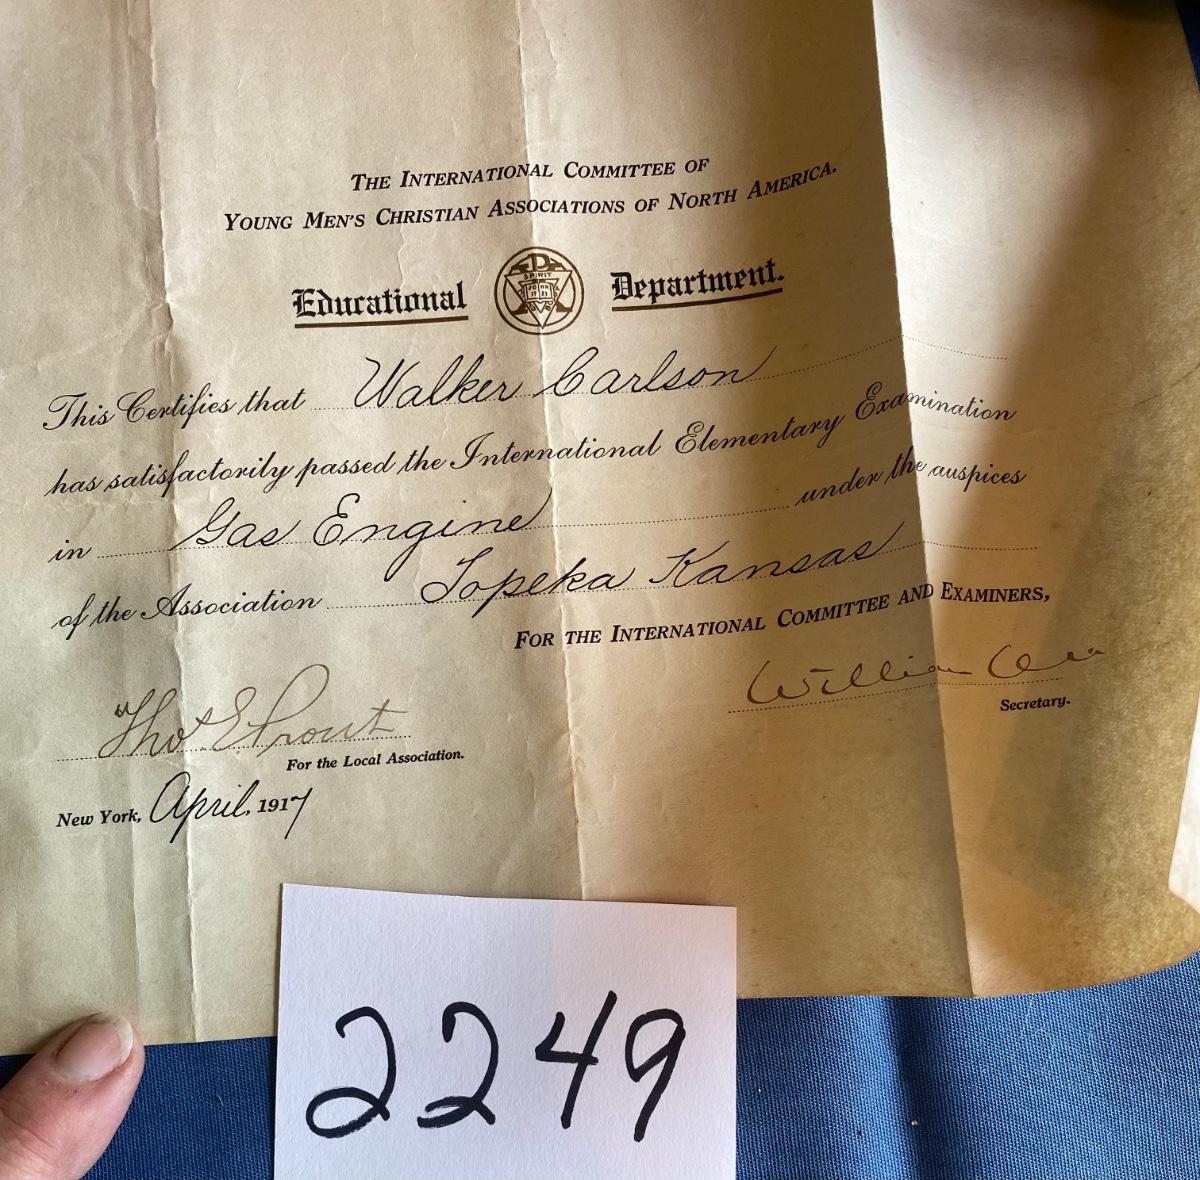 THE INTERNATIONAL COMMITTEE OF
YOUNG MEN'S CHRISTIAN ASSOCIATIONS OF NORTH AMERICA.
Educational Department.
SPIRIT
This Certifies that Walker Carlson
has satisfactorily passed the International Elementary Examination
in Gas Engine under the auspices
of the Association Topeka Kansas
FOR THE INTERNATIONAL COMMITTEE AND EXAMINERS,
William
Secretary.
Thos E Prout
For the Local Association.
New York, April, 1917
2249